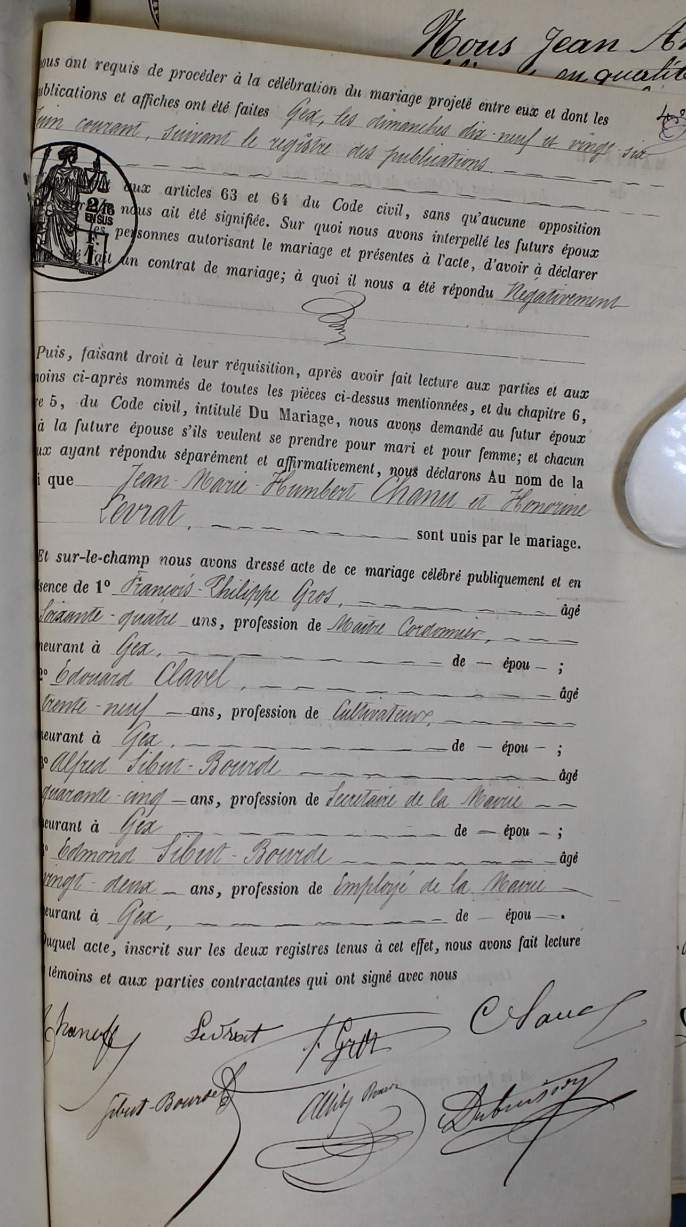 Nous Jean
en qualité
nous ont requis de procéder à la célébration du mariage projeté entre eux et dont les
ublications et affiches ont été faites Gex, les dimanches dix-neuf et vingt-six
juin courant, suivant le registre des publications
aux articles 63 et 64 du Code civil, sans qu'aucune opposition
2/10
EN SUS
nous ait été signifiée. Sur quoi nous avons interpellé les futurs époux
es personnes autorisant le mariage et présentes à l'acte, d'avoir à déclarer
fait un contrat de mariage; à quoi il nous a été répondu Négativement
Puis, faisant droit à leur réquisition, après avoir fait lecture aux parties et aux
moins ci-après nommés de toutes les pièces ci-dessus mentionnées, et du chapitre 6,
re 5, du Code civil, intitulé Du Mariage, nous avons demandé au futur époux
à la future épouse s'ils veulent se prendre pour mari et pour femme; et chacun
ux ayant répondu séparément et affirmativement, nous déclarons Au nom de la
i que Jean-Marie-Humbert Chanu et Honorine
Levrat, sont unis par le mariage.
Et sur-le-champ nous avons dressé acte de ce mariage célébré publiquement et en
sence de 1° François-Philippe Gros, âgé
Soixante-quatre ans, profession de Maître Cordonnier,
meurant à Gex, de — épou — ;
2° Edouard Clavel, âgé
trente-neuf ans, profession de Cultivateur,
meurant à Gex, de — épou — ;
3° Alfred Sibut-Bourde âgé
quarante-cinq ans, profession de Secrétaire de la Mairie
meurant à Gex de — épou — ;
Edmond Sibut-Bourde âgé
vingt-deux ans, profession de Employé de la Mairie
meurant à Gex, de — épou — .
Duquel acte, inscrit sur les deux registres tenus à cet effet, nous avons fait lecture
témoins et aux parties contractantes qui ont signé avec nous
Levrat F. Gros Clavel
Sibut-Bourde Dubuisson